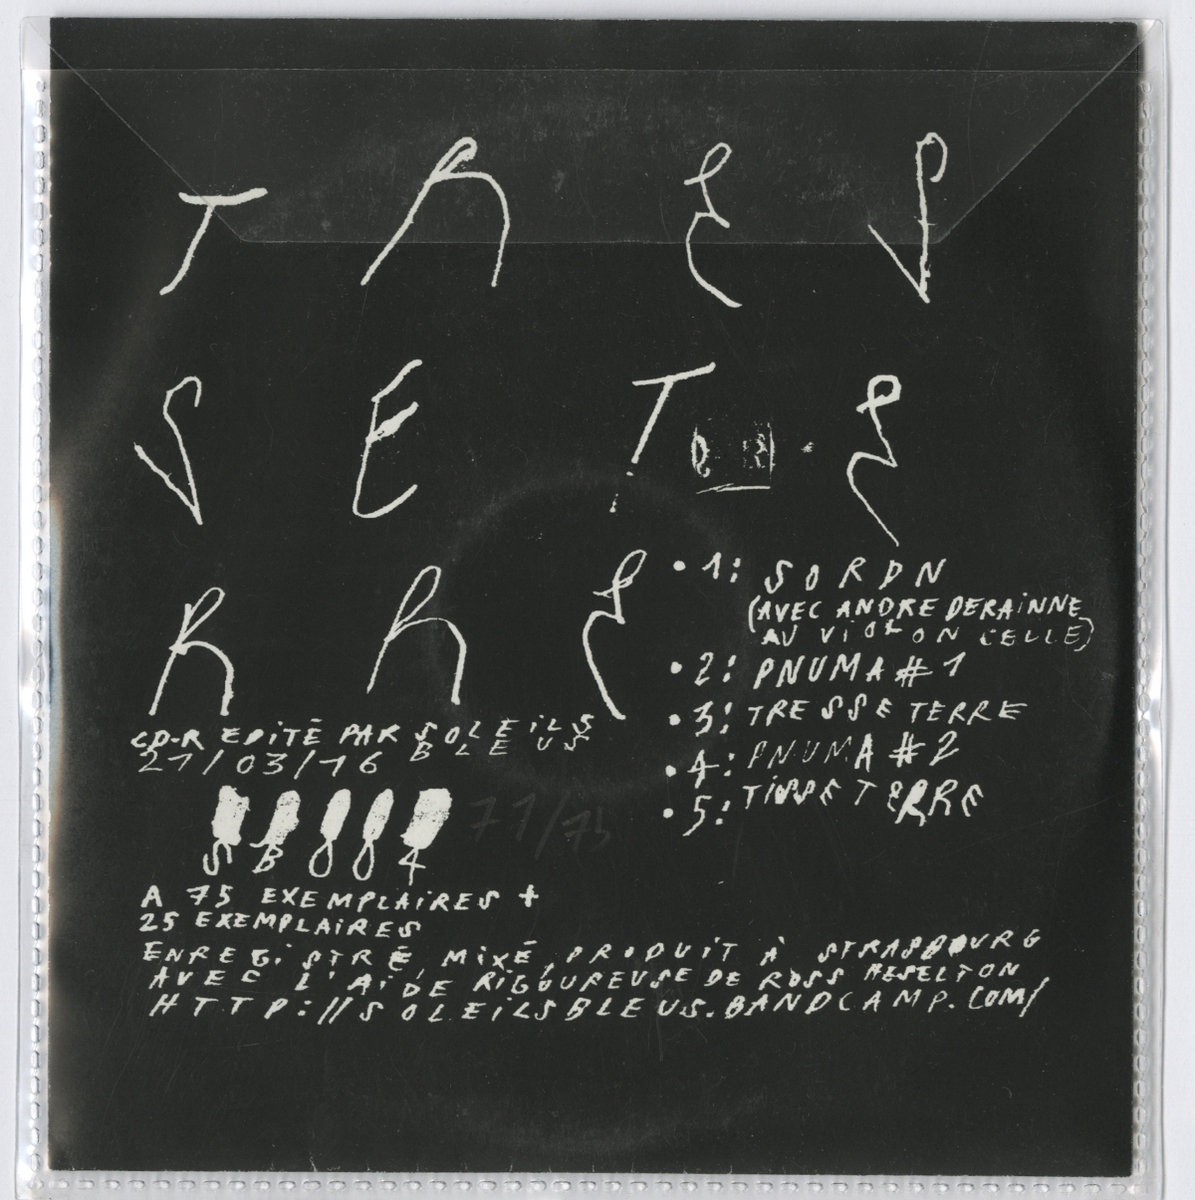 TRES
SETE
RRE
•1: SORDN
(AVEC ANDRE DERAiNNE
AU ViOLONCELLE)
•2: PNUMA #1
•3: TRESSETERRE
•4: PNUMA #2
•5: TiSSETERRE
CD-R EDiTÉ PAR SOLEiLS BLEUS
21/03/16
SB004
71/75
A 75 EXEMPLAiRES +
25 EXEMPLAiRES
ENREGiSTRÉ, MiXÉ, PRODUiT À STRASBOURG
AVEC L'AiDE RiGOUREUSE DE ROSS HESELTON
HTTP://SOLEiLSBLEUS.BANDCAMP.COM/